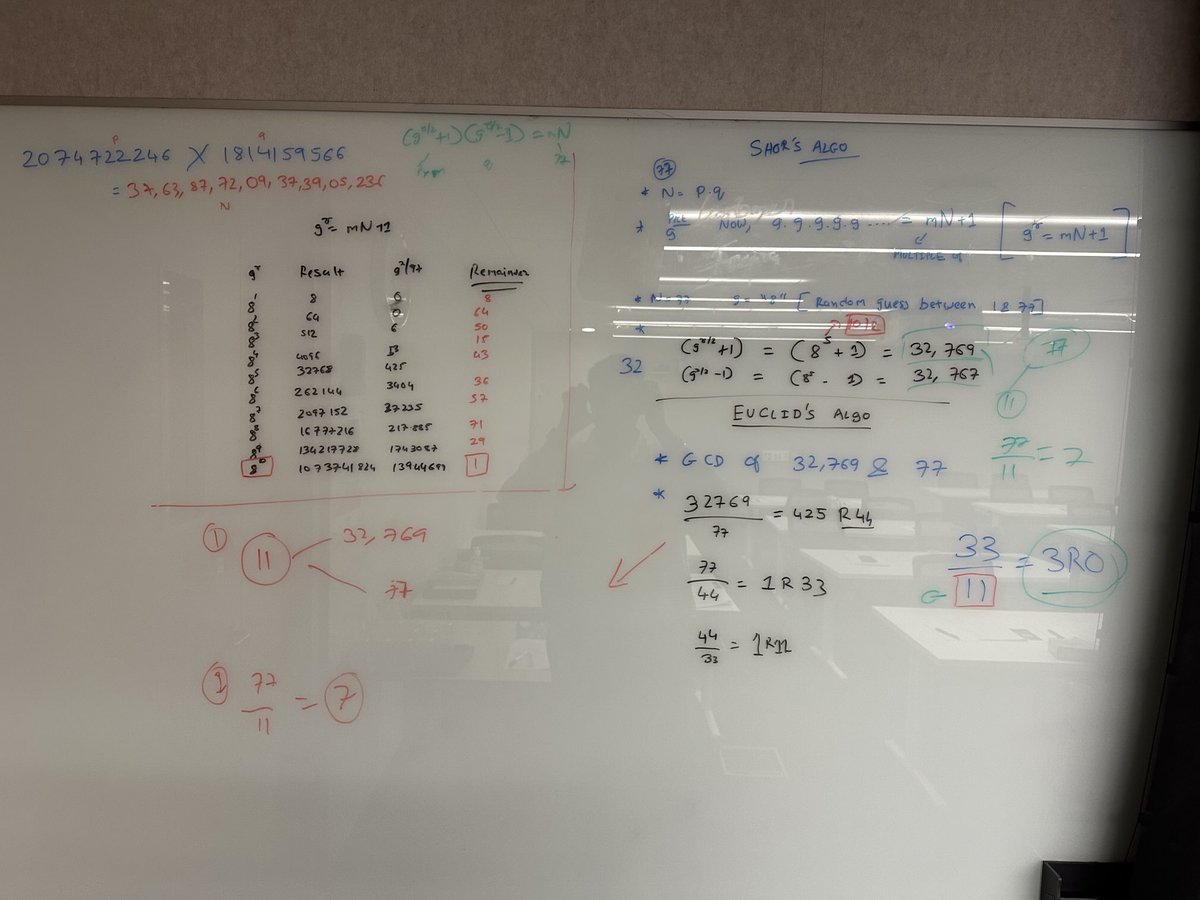 p q
2074722246 X 1814159566
= 37,63,87,72,09,37,39,05,236
N
(g^r/2+1)(g^r/2-1) = mN
77
g^r = mN+1
g^r Result g^r/77 Remainder
8^1 8 0 8
8^2 64 0 64
8^3 512 6 50
8^4 4096 15
8^5 32768 425 43
8^6 262144 3404 36
8^7 2097152 57
8^8 16777216 71
8^9 134217728 1743087 29
8^10 1073741824 1
① 11 32,769
77
77/11 = 7
SHOR'S ALGO
77
* N = P.q
* Pick g NOW, g.g.g.g.g .... = mN+1 [g^r = mN+1]
MULTIPLE of
* N=77 g = "8" [Random guess between 1 & 77]
* 10/2
(g^r/2+1) = (8^5 + 1) = 32,769
32 (g^r/2-1) = (8^5 - 1) = 32,767
77
11
77/11 = 7
EUCLID'S ALGO
* GCD of 32,769 & 77
* 32769/77 = 425 R44
77/44 = 1 R 33
44/33 = 1R11
33/11 = 3R0
G